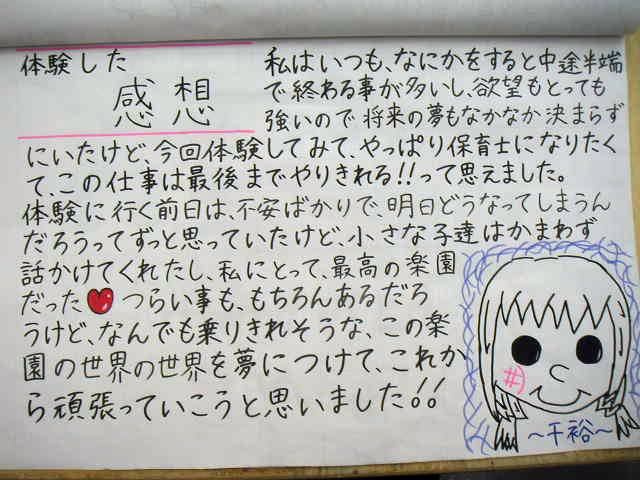 体験した
感想
私はいつも、なにかをすると中途半端
で終わる事が多いし、欲望もとっても
強いので将来の夢もなかなか決まらず
にいたけど、今回体験してみて、やっぱり保育士になりたく
て、この仕事は最後までやりきれる!!って思えました。
体験に行く前日は、不安ばかりで、明日どうなってしまうん
だろうってずっと思っていたけど、小さな子達はかまわず
話かけてくれたし、私にとって、最高の楽園
だった❤つらい事も、もちろんあるだろ
うけど、なんでも乗りきれそうな、この楽
園の世界の世界を夢につけて、これか
ら頑張っていこうと思いました!!
〜千裕〜